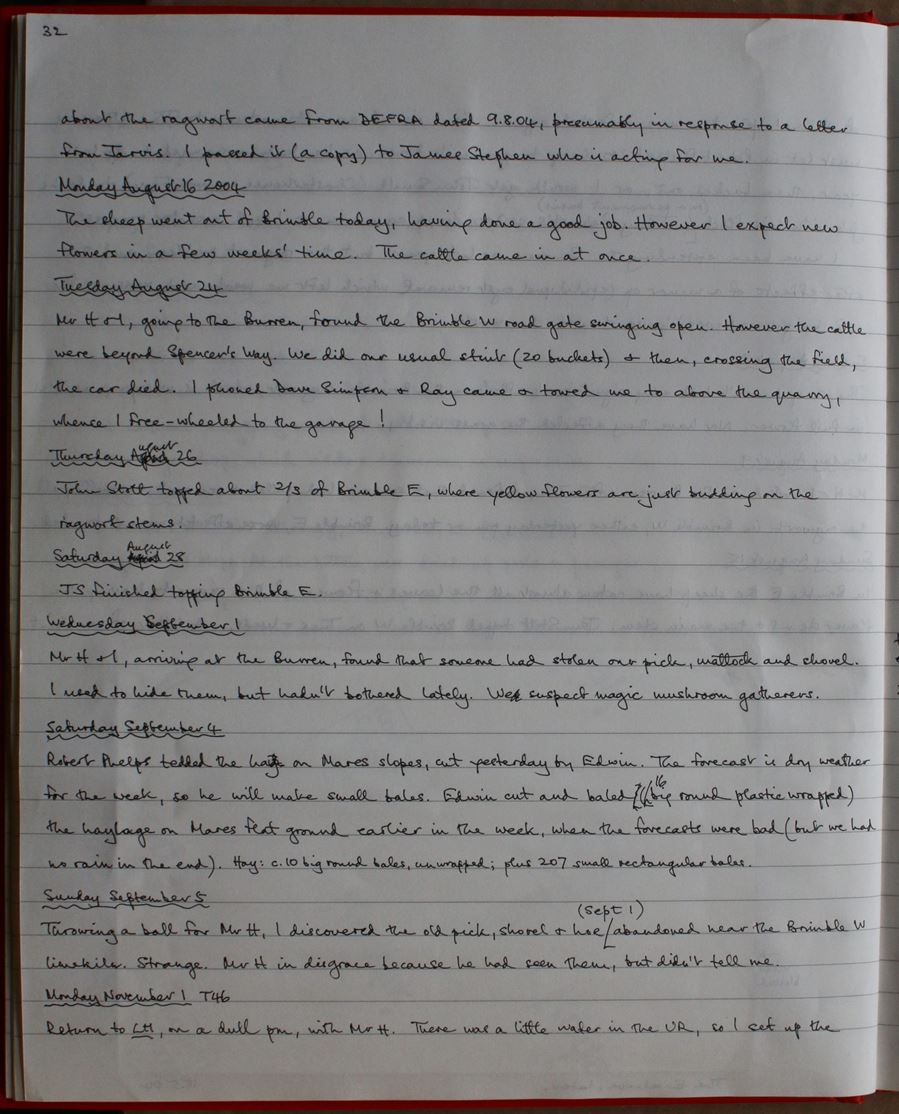 32
about the ragwort came from DEFRA dated 9.8.04, presumably in response to a letter
from Jarvis. I passed it (a copy) to James Stephen who is acting for me.
Monday August 16 2004
The sheep went out of Brimble today, having done a good job. However I expect new
flowers in a few weeks' time. The cattle came in at once.
Tuesday August 24
Mr H & I, going to the Burren, found the Brimble W road gate swinging open. However the cattle
were beyond Spencer's Way. We did our usual stint (20 buckets) & then, crossing the field,
the car died. I phoned Dave Simpson & Ray came & towed me to above the quarry,
whence I free-wheeled to the garage!
Thursday August 26
John Stott topped about 2/3 of Brimble E, where yellow flowers are just budding on the
ragwort stems.
Saturday August 28
JS finished topping Brimble E.
Wednesday September 1
Mr H & I, arriving at the Burren, found that someone had stolen our pick, mattock and shovel.
I used to hide them, but hadn't bothered lately. We suspect magic mushroom gatherers.
Saturday September 4
Robert Phelps tedded the hay on Mares slopes, cut yesterday by Edwin. The forecast is dry weather
for the week, so he will make small bales. Edwin cut and baled (16 big round plastic wrapped)
the haylage on Mares flat ground earlier in the week, when the forecasts were bad (but we had
no rain in the end). Hay: c.10 big round bales, unwrapped; plus 207 small rectangular bales.
Sunday September 5
Throwing a ball for Mr H, I discovered the old pick, shovel & hoe (Sept 1) abandoned near the Brimble W
limekiln. Strange. Mr H in disgrace because he had seen them, but didn't tell me.
Monday November 1 T46
Return to LH, on a dull pm, with Mr H. There was a little water in the UR, so I set up the